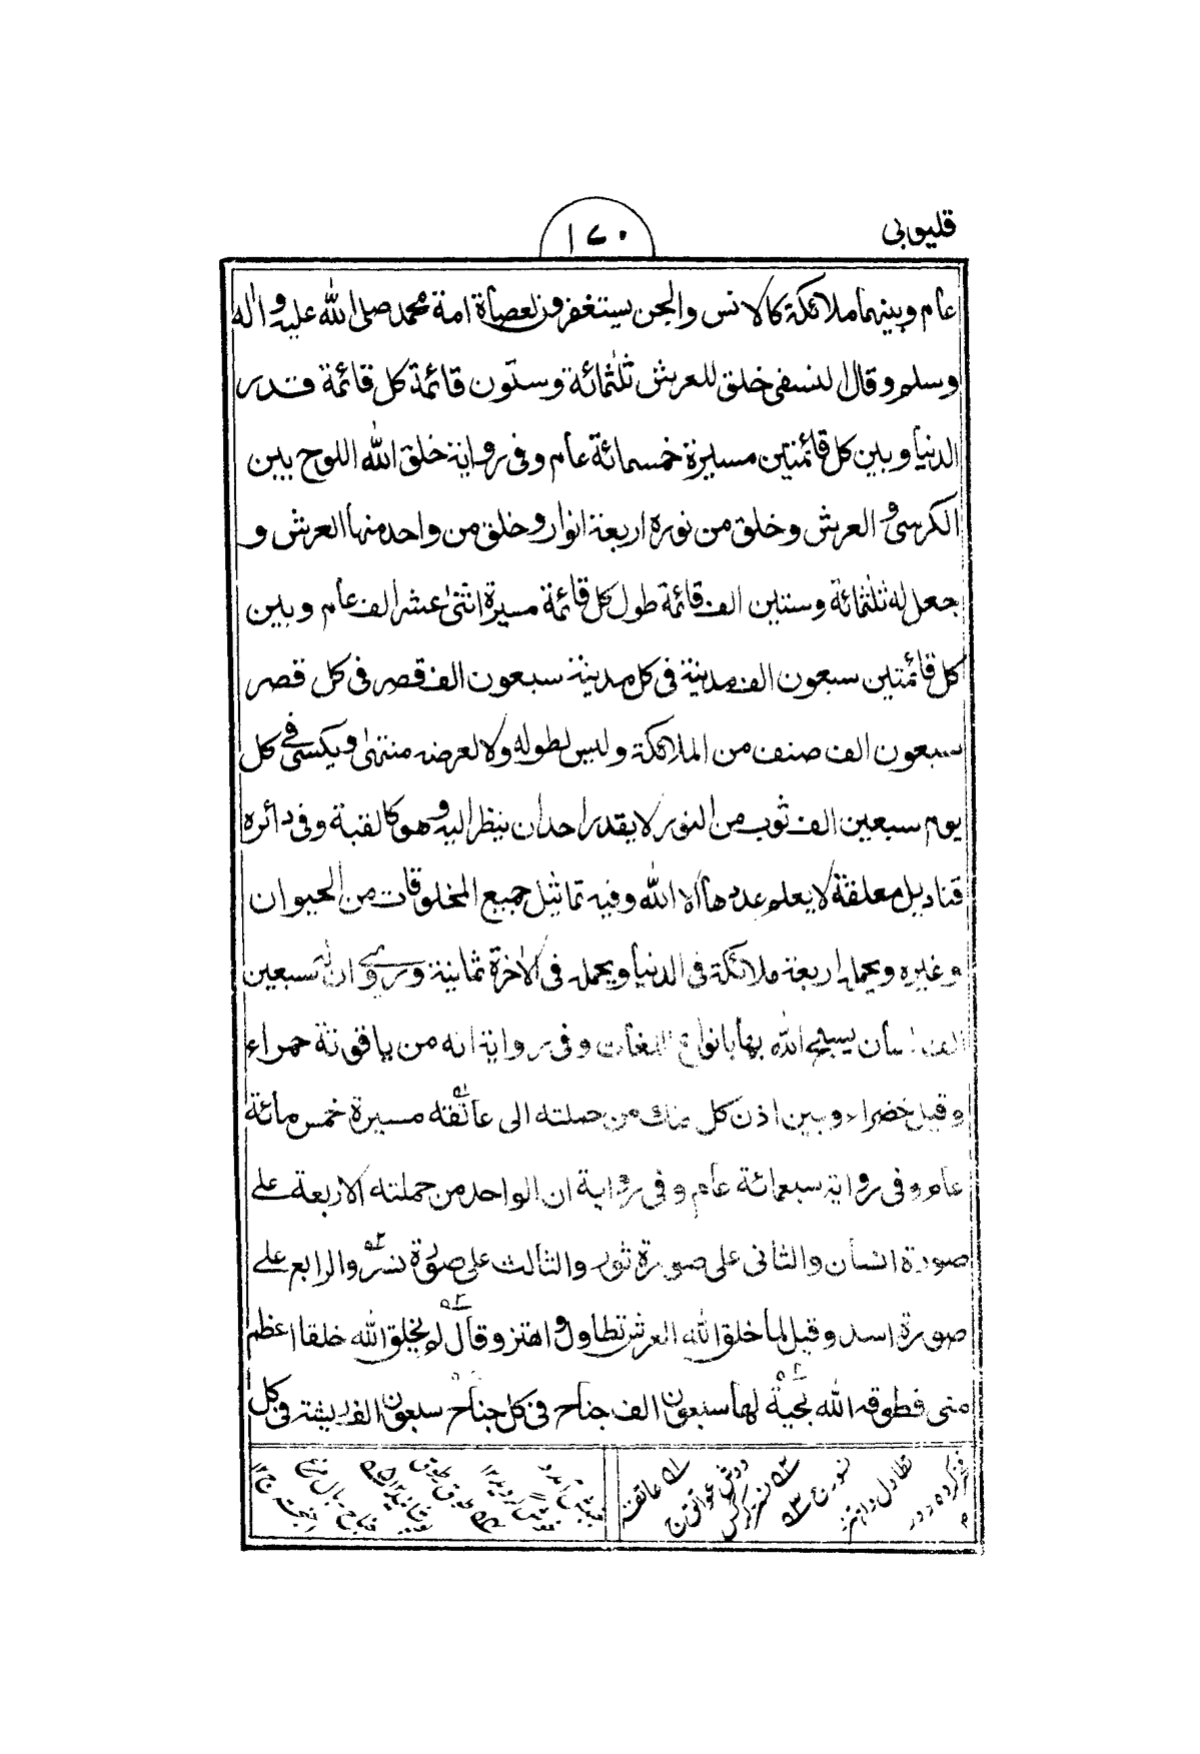 قليوبي
١٧٠
عام وبينهما ملائكة كالانس والجن يستغفرون لعصاة امة محمد صلى الله عليه واله
وسلم وقال النسفى خلق للعرش ثلثمائة وستون قائمة كل قائمة قدر
الدنيا وبين كل قائمتين مسيرة خمسمائة عام وفى رواية خلق الله اللوح بين
الكرسى و العرش وخلق من نوره اربعة انوار وخلق من واحد منها العرش و
جعل له ثلثمائة وستين الف قائمة طول كل قائمة مسيرة اثنى عشر الف عام وبين
كل قائمتين سبعون الف مدينة فى كل مدينة سبعون الف قصر فى كل قصر
سبعون الف صنف من الملائكة وليس لطوله ولا لعرضه منتهى ويكسى فى كل
يوم سبعين الف ثوب من النور لا يقدر احد ان ينظر اليه وهو كالقبة وفى دائره
قناديل معلقة لا يعلم عددها الا الله وفيه تماثيل جميع المخلوقات من الحيوان
وغيره ويحمله اربعة ملائكة فى الدنيا ويحمله فى الاخرة ثمانية وروى ان له سبعين
الف لسان يسبح الله بها بانواع اللغات وفى رواية انه من ياقوتة حمراء
وقيل خضراء وبين اذن كل ملك من حملته الى عاتقه مسيرة خمس مائة
عام وفى رواية سبعمائة عام وفى رواية ان الواحد من حملته الاربعة على
صورة انسان والثانى على صورة ثور والثالث على صورة نسر والرابع على
صورة اسد وقيل لما خلق الله العرش تطاول واهتز وقال لم يخلق الله خلقا اعظم
منى فطوقه الله بحية لها سبعون الف جناح فى كل جناح سبعون الف ريشة فى كل